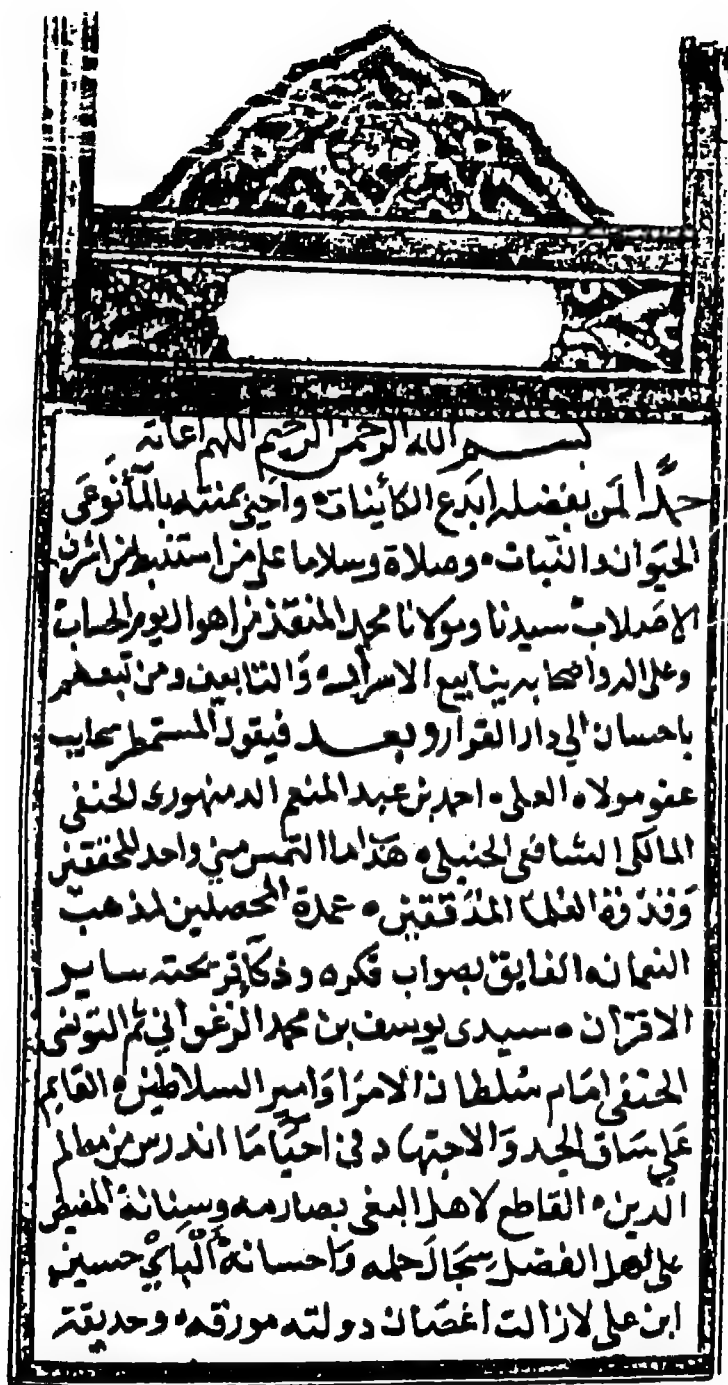 بسم الله الرحمن الرحيم اللهم اعانة
حمدا لمن بفضله ابدع الكائينات واحيى بمنته بالماء نوعى
الحيوان والنبات وصلاة وسلاما على من استنبط من
الاصلاب سيدنا ومولانا محمد المنقذ من اهوال يوم الحساب
وعلى اله واصحابه ينابيع الاسرار والتابعين ومن تبعهم
باحسان الى دار القرار وبعد فيقول المستمطر سحايب
عفو مولاه العلى احمد بن عبد المنعم الدمنهورى الحنفى
المالكى الشافعى الحنبلى هذا ما التمس منى واحد المحققين
وقدوة العلما المدققين عمدة المحصلين لمذهب
النعمان الفايق بصواب فكره وذكا قريحته ساير
الاقران سيدى يوسف بن محمد الزغوانى ثم التونسى
الحنفى امام سلطان الامرا وامير السلاطين القايم
على ساق الجد والاجتهاد فى احيا ما اندرس من معالم
الدين القاطع لاهل البغى بصارمه وسنانه المفيض
على اهل الفضل سجال حلمه واحسانه الباى حسين
ابن على لازالت اغصان دولته مورقه وحديقة